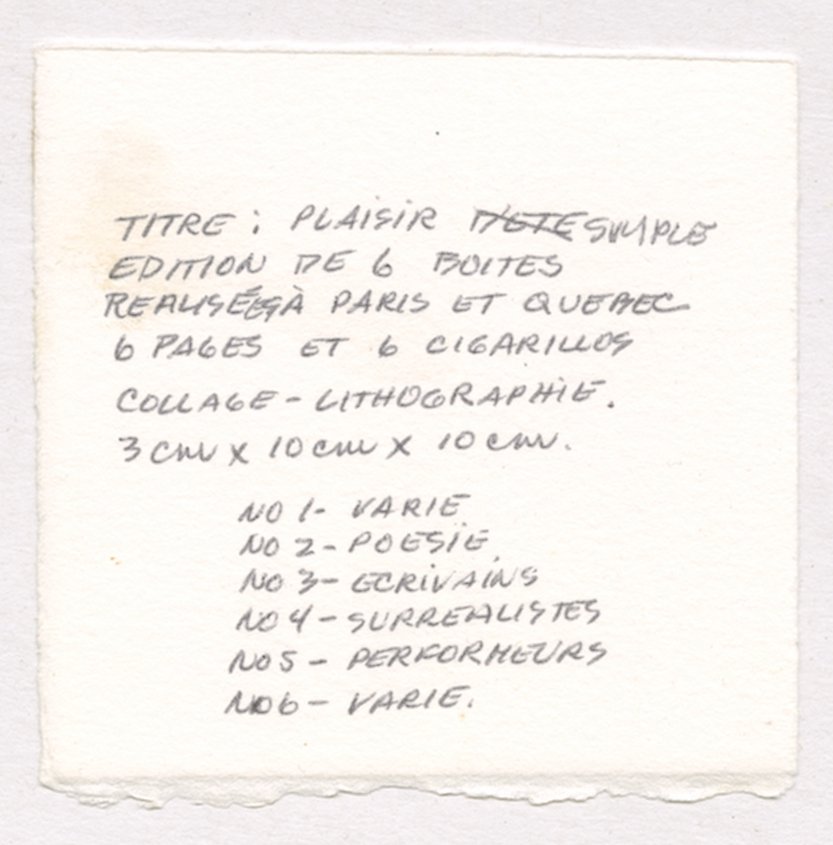 TITRE : PLAISIR D'ETE SIMPLE
EDITION DE 6 BOITES
REALISÉES À PARIS ET QUEBEC
6 PAGES ET 6 CIGARILLOS
COLLAGE - LITHOGRAPHIE.
3 cm x 10 cm x 10 cm.
NO 1- VARIE
NO 2 - POESIE
NO 3 - ECRIVAINS
NO 4 - SURREALISTES
NO 5 - PERFORMEURS
NO 6 - VARIE.